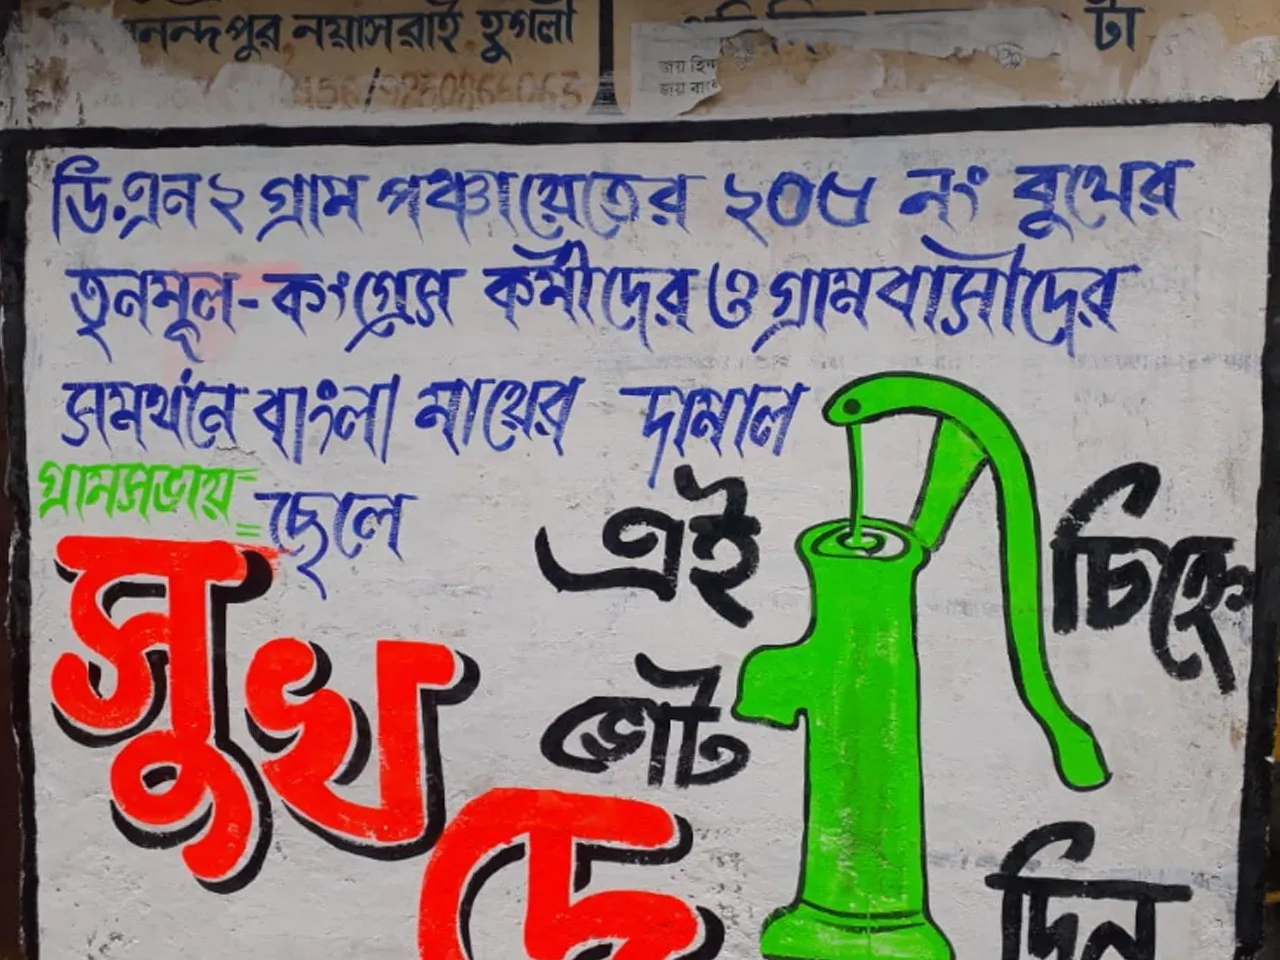 নন্দপুর নয়াসরাই হুগলী
টা
জয় হিন্দ
ডি.এন ২ গ্রাম পঞ্চায়েতের ২০৫ নং বুথের
তৃনমূল-কংগ্রেস কর্মীদের ও গ্রামবাসীদের
সমর্থনে বাংলা মায়ের দামাল
গ্রামসভায় ছেলে
এই চিহ্নে
সুখ
ভোট
দে
দিন